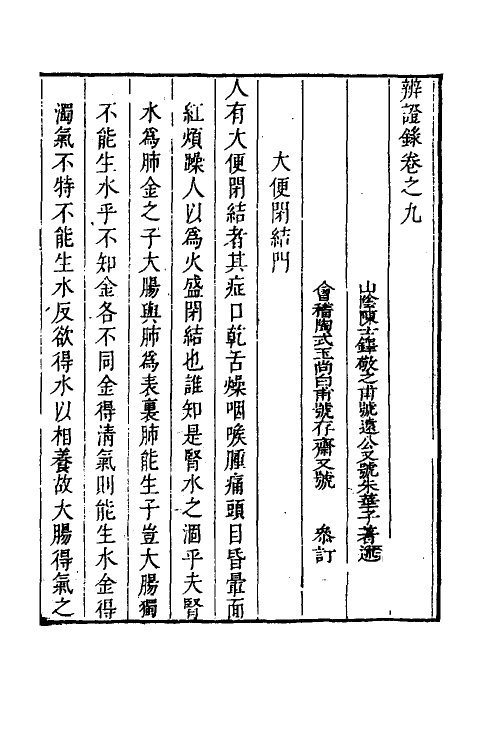 辨證錄卷之九
山陰陳士鐸敬之甫號遠公又號朱華子著述
會稽陶式玉尚白甫號存齋又號　參訂
大便閉結門
人有大便閉結者其症口乾舌燥咽喉腫痛頭目昏暈面
紅煩躁人以爲火盛閉結也誰知是腎水之涸乎夫腎
水爲肺金之子大腸與肺爲表裏肺能生子豈大腸獨
不能生水乎不知金各不同金得清氣則能生水金得
濁氣不特不能生水反欲得水以相養故大腸得氣之